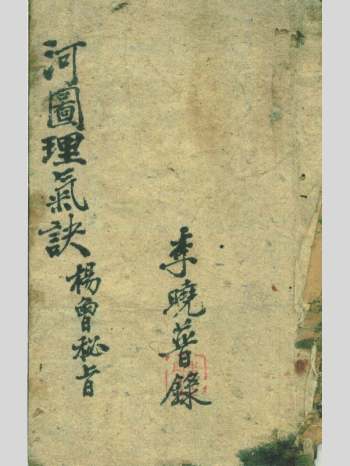 河圖理氣訣
楊曾秘旨
李曉普錄